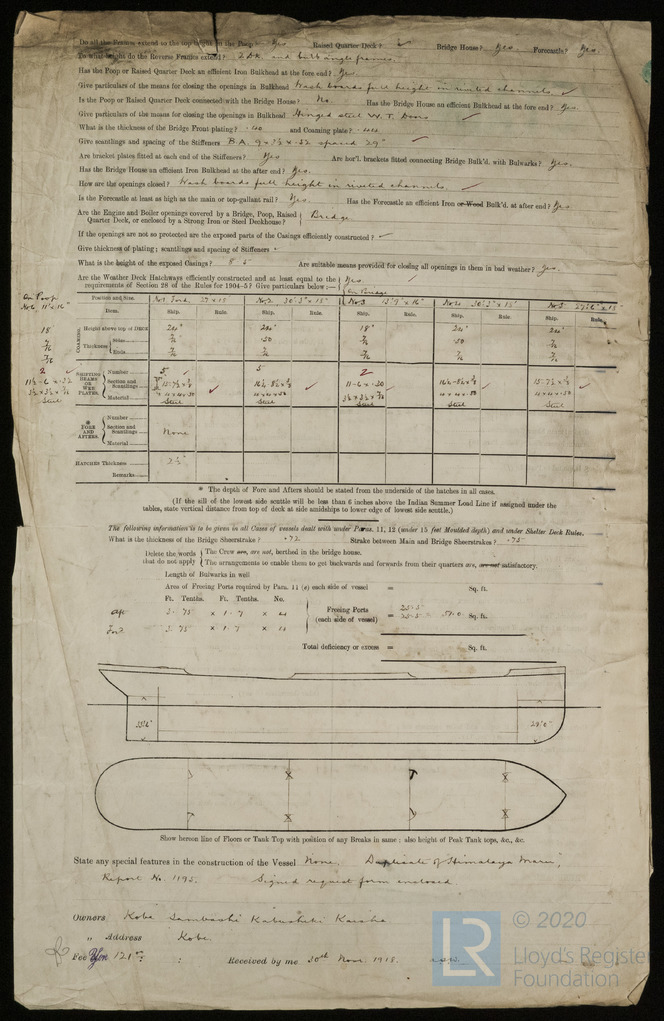 Do all the Frames extend to the top height in the Poop? Yes Raised Quarter Deck? ✓ Bridge House? Yes Forecastle? Yes.
To what height do the Reverse Frames extend? 2 Dk. and bulb angle frames.
Has the Poop or Raised Quarter Deck an efficient Iron Bulkhead at the fore end? Yes.
Give particulars of the means for closing the openings in Bulkhead Wash boards full height in riveted channels. ✓
Is the Poop or Raised Quarter Deck connected with the Bridge House? No. Has the Bridge House an efficient Bulkhead at the fore end? Yes.
Give particulars of the means for closing the openings in Bulkhead Hinged steel W.T. Doors ✓
What is the thickness of the Bridge Front plating? .40 and Coaming plate? .44
Give scantlings and spacing of the Stiffeners B A. spaced 29" ✓
Are bracket plates fitted at each end of the Stiffeners? Yes Are hor'l. brackets fitted connecting Bridge Bulk'd. with Bulwarks? Yes.
Has the Bridge House an efficient Iron Bulkhead at the after end? Yes.
How are the openings closed? Wash boards full height in riveted channels. ✓
Is the Forecastle at least as high as the main or top-gallant rail? Yes. Has the Forecastle an efficient Iron or Wood Bulk'd. at after end? Yes
Are the Engine and Boiler openings covered by a Bridge, Poop, Raised Quarter Deck, or enclosed by a Strong Iron or Steel Deckhouse? Bridge
If the openings are not so protected are the exposed parts of the Casings efficiently constructed? ✓
Give thickness of plating; scantlings and spacing of Stiffeners
What is the height of the exposed Casings? 8' 5" Are suitable means provided for closing all openings in them in bad weather? Yes.
Are the Weather Deck Hatchways efficiently constructed and at least equal to the requirements of Section 28 of the Rules for 1904-5? Give particulars below:— Yes ✓
On Poop
No 6 11' x 16" Position and Size. No 1 Ford. 27 x 15 No 2 30'3" x 15' No 3 13'9" x 16" No 4 30'3" x 15' No 5 27'6" x 15
On Bridge
Item. Ship. Rule. Ship. Rule. Ship. Rule. Ship. Rule. Ship. Rule.
18" COAMING Height above top of DECK 24" 24" 18" 24" 24"
Thickness Sides .50 .50
Ends
2 ✓ SHIFTING BEAMS OR WEB PLATES. Number 5 ✓ 5 2
Section and Scantlings ✓ ✓ 11-6 x .30 ✓ ✓
Steel Material Steel Steel Steel Steel Steel
* FORE AND AFTERS. Number
Section and Scantlings None
Material
HATCHES Thickness 2½"
Remarks
* The depth of Fore and Afters should be stated from the underside of the hatches in all cases.
(If the sill of the lowest side scuttle will be less than 6 inches above the Indian Summer Load Line if assigned under the
tables, state vertical distance from top of deck at side amidships to lower edge of lowest side scuttle.)
The following information is to be given in all Cases of vessels dealt with under Paras. 11, 12 (under 15 feet Moulded depth) and under Shelter Deck Rules.
What is the thickness of the Bridge Sheerstrake? .72 Strake between Main and Bridge Sheerstrakes? .75
Delete the words that do not apply The Crew are, are not, berthed in the bridge house.
The arrangements to enable them to get backwards and forwards from their quarters are, are not satisfactory.
Length of Bulwarks in well
Area of Freeing Ports required by Para. 11 (e) each side of vessel = Sq. ft.
Ft. Tenths. Ft. Tenths. No.
Aft 3. 75 x 1. 7 x 4
Ford 3. 75 x 1. 7 x 4
Freeing Ports (each side of vessel) = 25.5 25.5 51.0 Sq. ft.
Total deficiency or excess = Sq. ft.
Show hereon line of Floors or Tank Top with position of any Breaks in same; also height of Peak Tank tops, &c., &c.
State any special features in the construction of the Vessel None. Duplicate of "Himalaya Maru",
Report No. 1195. Signed request form enclosed.
Owners Kobe Sambashi Kabushiki Kaisha
" Address Kobe.
Fee Yen 121 : : Received by me 30th Nov. 1918.
LR © 2020
Lloyd's Register
Foundation